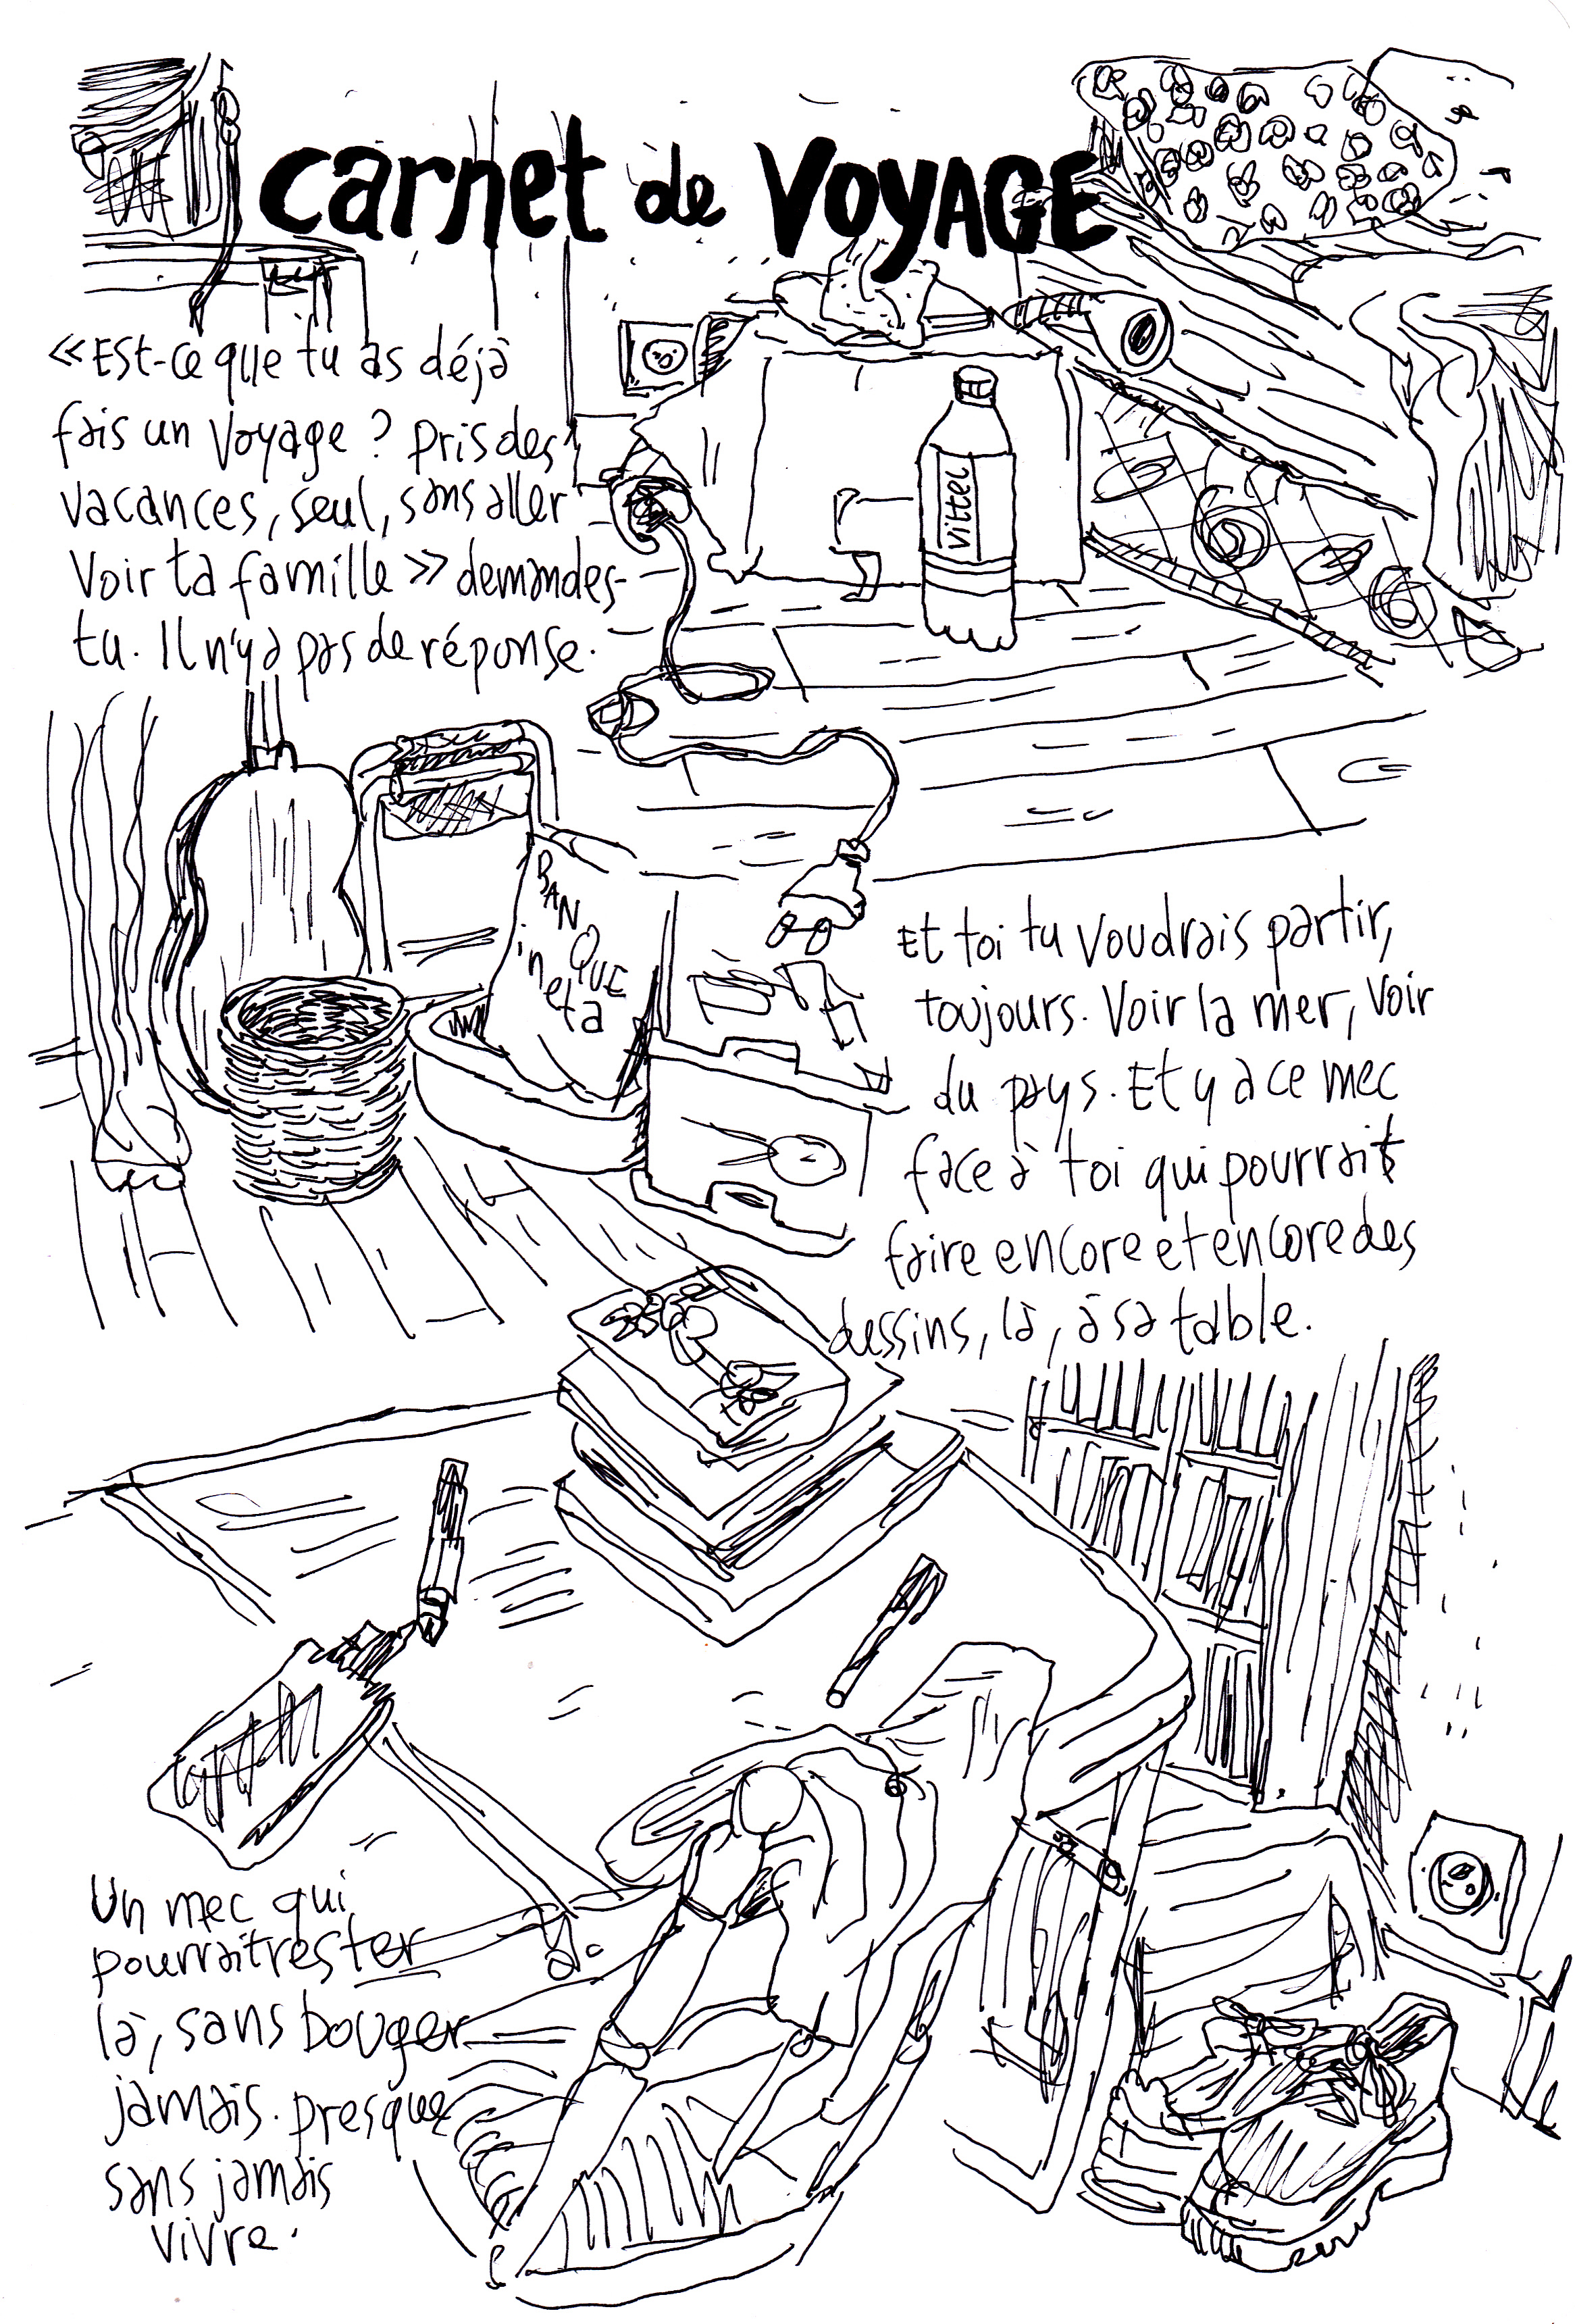 carnet de VOYAGE
« Est-ce que tu as déjà
fais un voyage ? Pris des
vacances, seul, sans aller
voir ta famille » demandes-
tu. Il n'y a pas de réponse.
Vittel
BANQUE
ineta
Et toi tu voudrais partir,
toujours. Voir la mer, voir
du pays. Et y a ce mec
face à toi qui pourrait
faire encore et encore des
dessins, là, à sa table.
Un mec qui
pourrait rester
là, sans bouger
jamais. Presque
sans jamais
vivre.